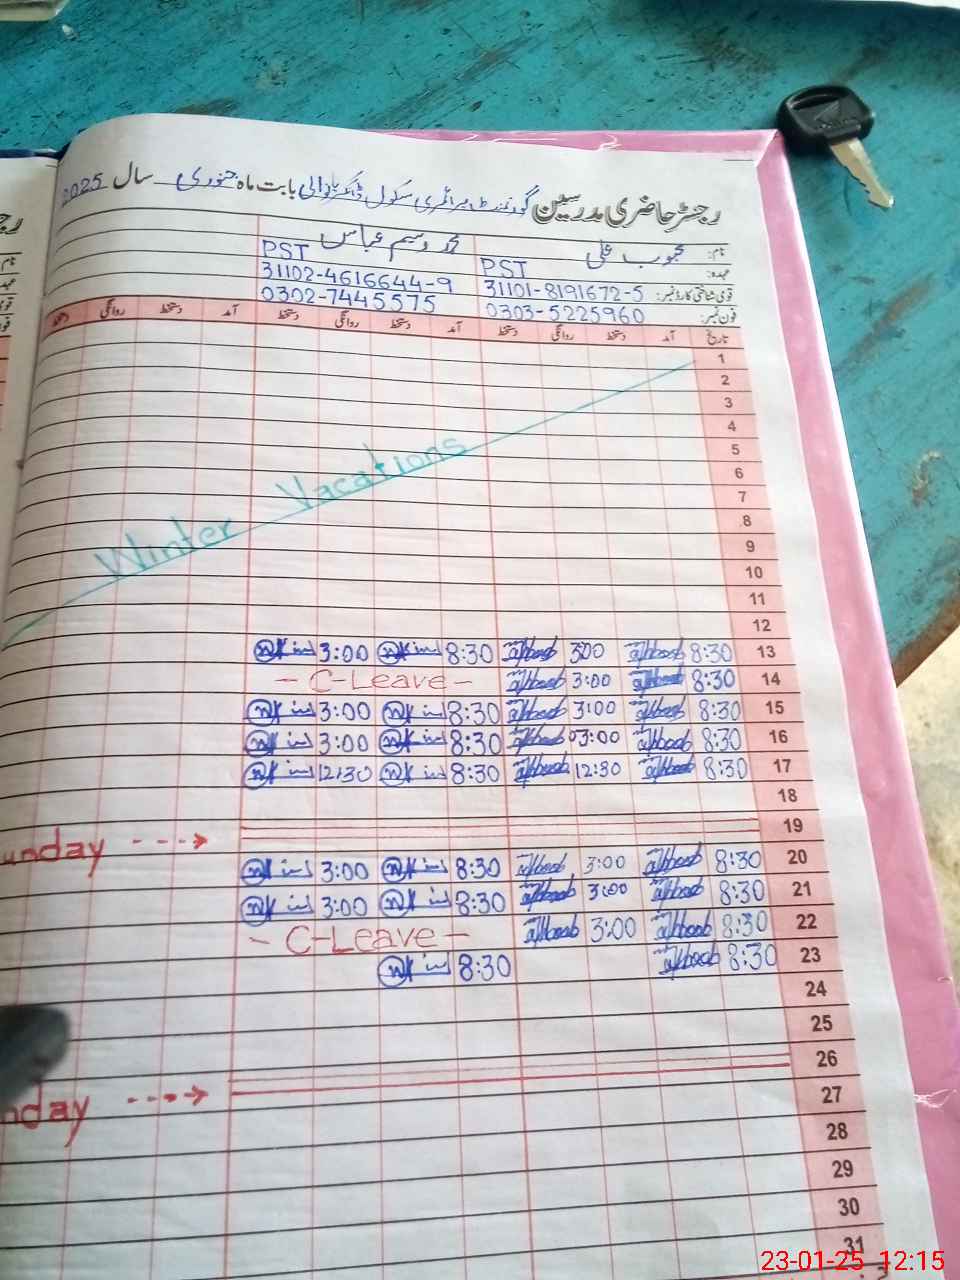 رجسٹر حاضری مدرسین گورنمنٹ پرائمری سکول بابت ماہ جنوری سال 2025
نام: محبوب علی محمد وسیم عباس
عہدہ: PST PST
قومی شناختی کارڈ نمبر: 31101-8191672-5 31102-4616644-9
فون نمبر: 0303-5225960 0302-7445575
تاریخ آمد دستخط روانگی دستخط آمد دستخط روانگی دستخط آمد دستخط روانگی دستخط
1
2
3
4
5
6
7
8
9
10
11
12
Winter Vacations
13 8:30 300 8:30 3:00
14 8:30 3:00 - C-Leave -
15 8:30 3:00 8:30 3:00
16 8:30 03:00 8:30 3:00
17 8:30 12:30 8:30 12:30
18
19
unday ---->
20 8:30 3:00 8:30 3:00
21 8:30 3:00 8:30 3:00
22 8:30 3:00 - C-Leave -
23 8:30 8:30
24
25
26
nday ---->
27
28
29
30
31
23-01-25 12:15